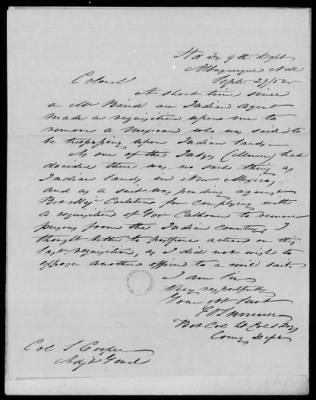 Hd Qrs 9th Dept
Albuquerque N.M.
Sept 29/52
Colonel
A short time since
a Mr Baird an Indian agent
made a requisition upon me to
remove a Mexican who was said to
be trespassing upon Indian lands.
As one of the Judges has
decided there was no such thing as
Indian lands in New Mexico,
and as a suit was pending against
for complying with
a requisition of Gov Calhoun to remove
persons from the Indian country, I
thought better to postpone action on this
last requisition, as I did not wish to
expose another officer to a civil suit.
I am Sir
Very respectfully
Your obt Servt
E V Sumner
Bvt Col Lt Col 1 Drg
Comg Dept
Col S Cooper
Adjt Genl